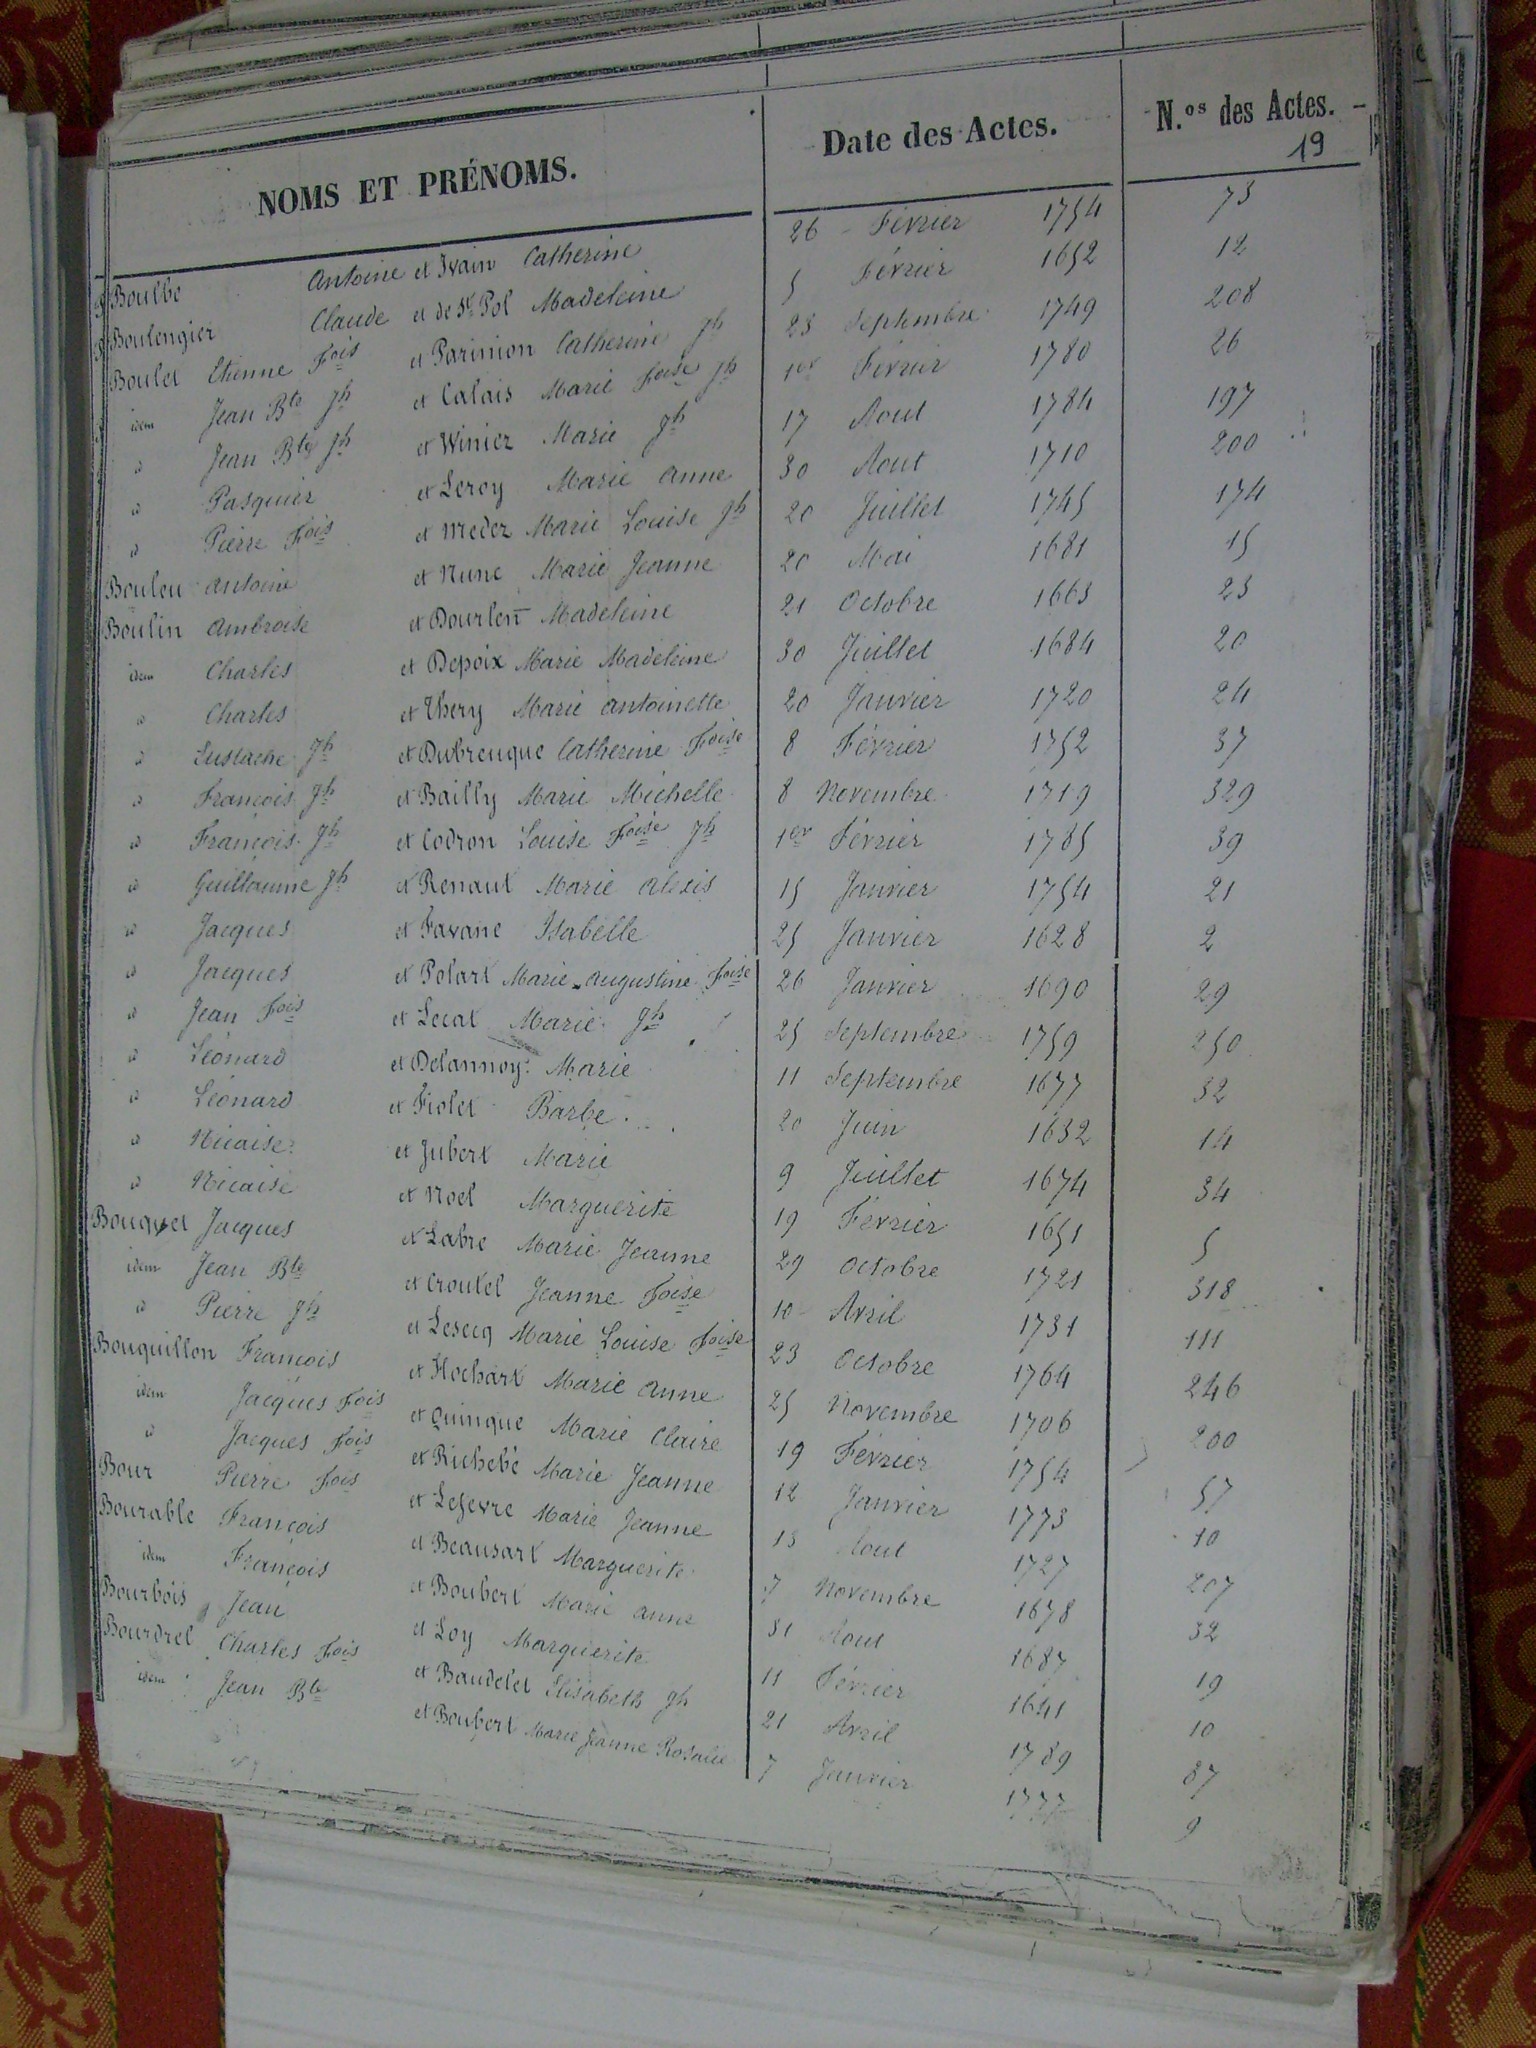 NOMS ET PRÉNOMS. Date des Actes. N.os des Actes.
19
Boulbé Antoine et Ivain Catherine 26 Février 1754 73
Boulengier Claude et de St Pol Madeleine 5 Février 1652 12
Boulet Etienne Fois et Parinion Catherine Jh 23 Septembre 1749 208
idem Jean Bte Jh et Calais Marie Foise Jh 1er Février 1780 26
id Jean Bte Jh et Winiez Marie Jh 17 Aout 1784 197
id Pasquier et Leroy Marie Anne 30 Aout 1710 200
id Pierre Fois et Medez Marie Louise Jh 20 Juillet 1745 174
Bouleu Antoine et Nune Marie Jeanne 20 Mai 1681 15
Boulin Ambroise et Dourlen Madeleine 21 Octobre 1663 23
idem Charles et Depoix Marie Madeleine 30 Juillet 1684 20
id Charles et Thery Marie Antoinette 20 Janvier 1720 24
id Eustache Jh et Dubreuque Catherine Foise 8 Février 1752 37
id François Jh et Bailly Marie Michelle 8 Novembre 1719 329
id François Jh et Codron Louise Foise Jh 1er Février 1785 39
id Guillaume Jh et Renaut Marie Alexis 15 Janvier 1754 21
id Jacques et Favane Isabelle 25 Janvier 1628 2
id Jacques et Polart Marie Augustine Foise 26 Janvier 1690 29
id Jean Fois et Lecat Marie Jh 25 Septembre 1759 250
id Léonard et Delannoy Marie 11 Septembre 1677 32
id Léonard et Fiolet Barbe 20 Juin 1632 14
id Nicaise et Jubert Marie 9 Juillet 1674 34
id Nicaise et Noel Marguerite 19 Février 1651 5
Bouquet Jacques et Labre Marie Jeanne 29 Octobre 1721 318
idem Jean Bte et Croutel Jeanne Foise 10 Avril 1731 111
id Pierre Jh et Lesecq Marie Louise Foise 23 Octobre 1764 246
Bouquillon François et Hochart Marie Anne 25 Novembre 1706 200
idem Jacques Fois et Quinque Marie Claire 19 Février 1754 57
id Jacques Fois et Richebé Marie Jeanne 12 Janvier 1773 10
Bour Pierre Fois et Lefevre Marie Jeanne 13 Aout 1727 207
Bourable François et Beausart Marguerite 7 Novembre 1678 32
idem François et Boubert Marie Anne 31 Aout 1687 19
Bourbois Jean et Loy Marguerite 11 Février 1641 10
Bourdrel Charles Fois et Baudelet Elisabeth Jh 21 Avril 1789 87
idem Jean Bte et Boubert Marie Jeanne Rosalie 7 Janvier 1777 9